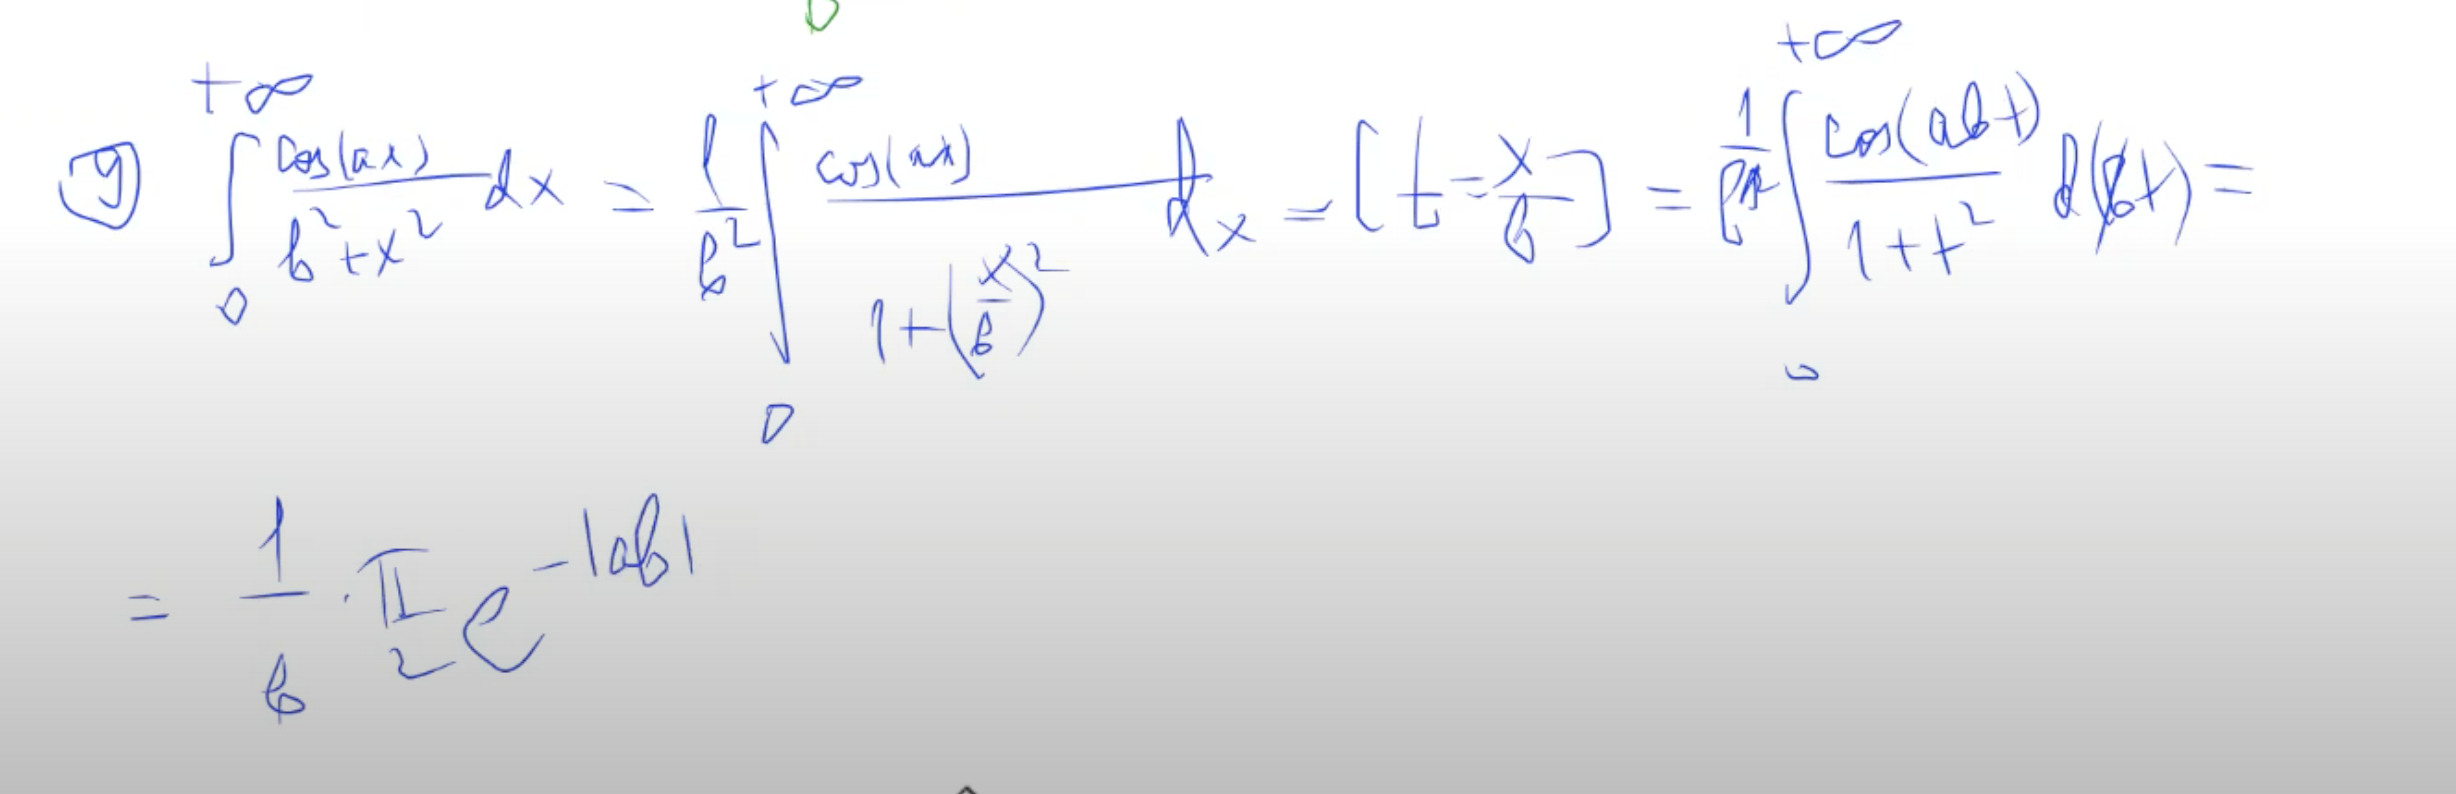 g) ∫_0^{+∞} cos(ax)/(b²+x²) dx = 1/b² ∫_0^{+∞} cos(ax)/(1+(x/b)²) dx = [t = x/b] = 1/b² ∫_0^{+∞} cos(abt)/(1+t²) d(bt) =
= 1/b · π/2 e^{-|ab|}